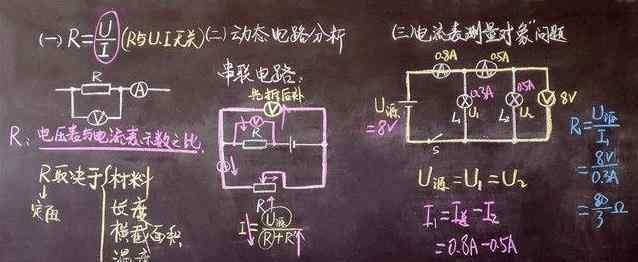 (一) R=U/I (R与U.I无关)
R
A
V
R: 电压表与电流表示数之比.
R取决于 材料
定值
长度
横截面积
温度
(二) 动态电路分析
串联电路:
先拆后补
V
V
R
A
R'
I=U源/R+R'
(三) "电流表测量对象"问题
0.8A 0.5A
A A
U源
=8V
0.3A 0.5A
L₁ U₁ L₂ U₂
V 8V
S
U源=U₁=U₂
I₁=I总-I₂
=0.8A-0.5A
R=U源/I₁
=8V/0.3A
=80/3 Ω